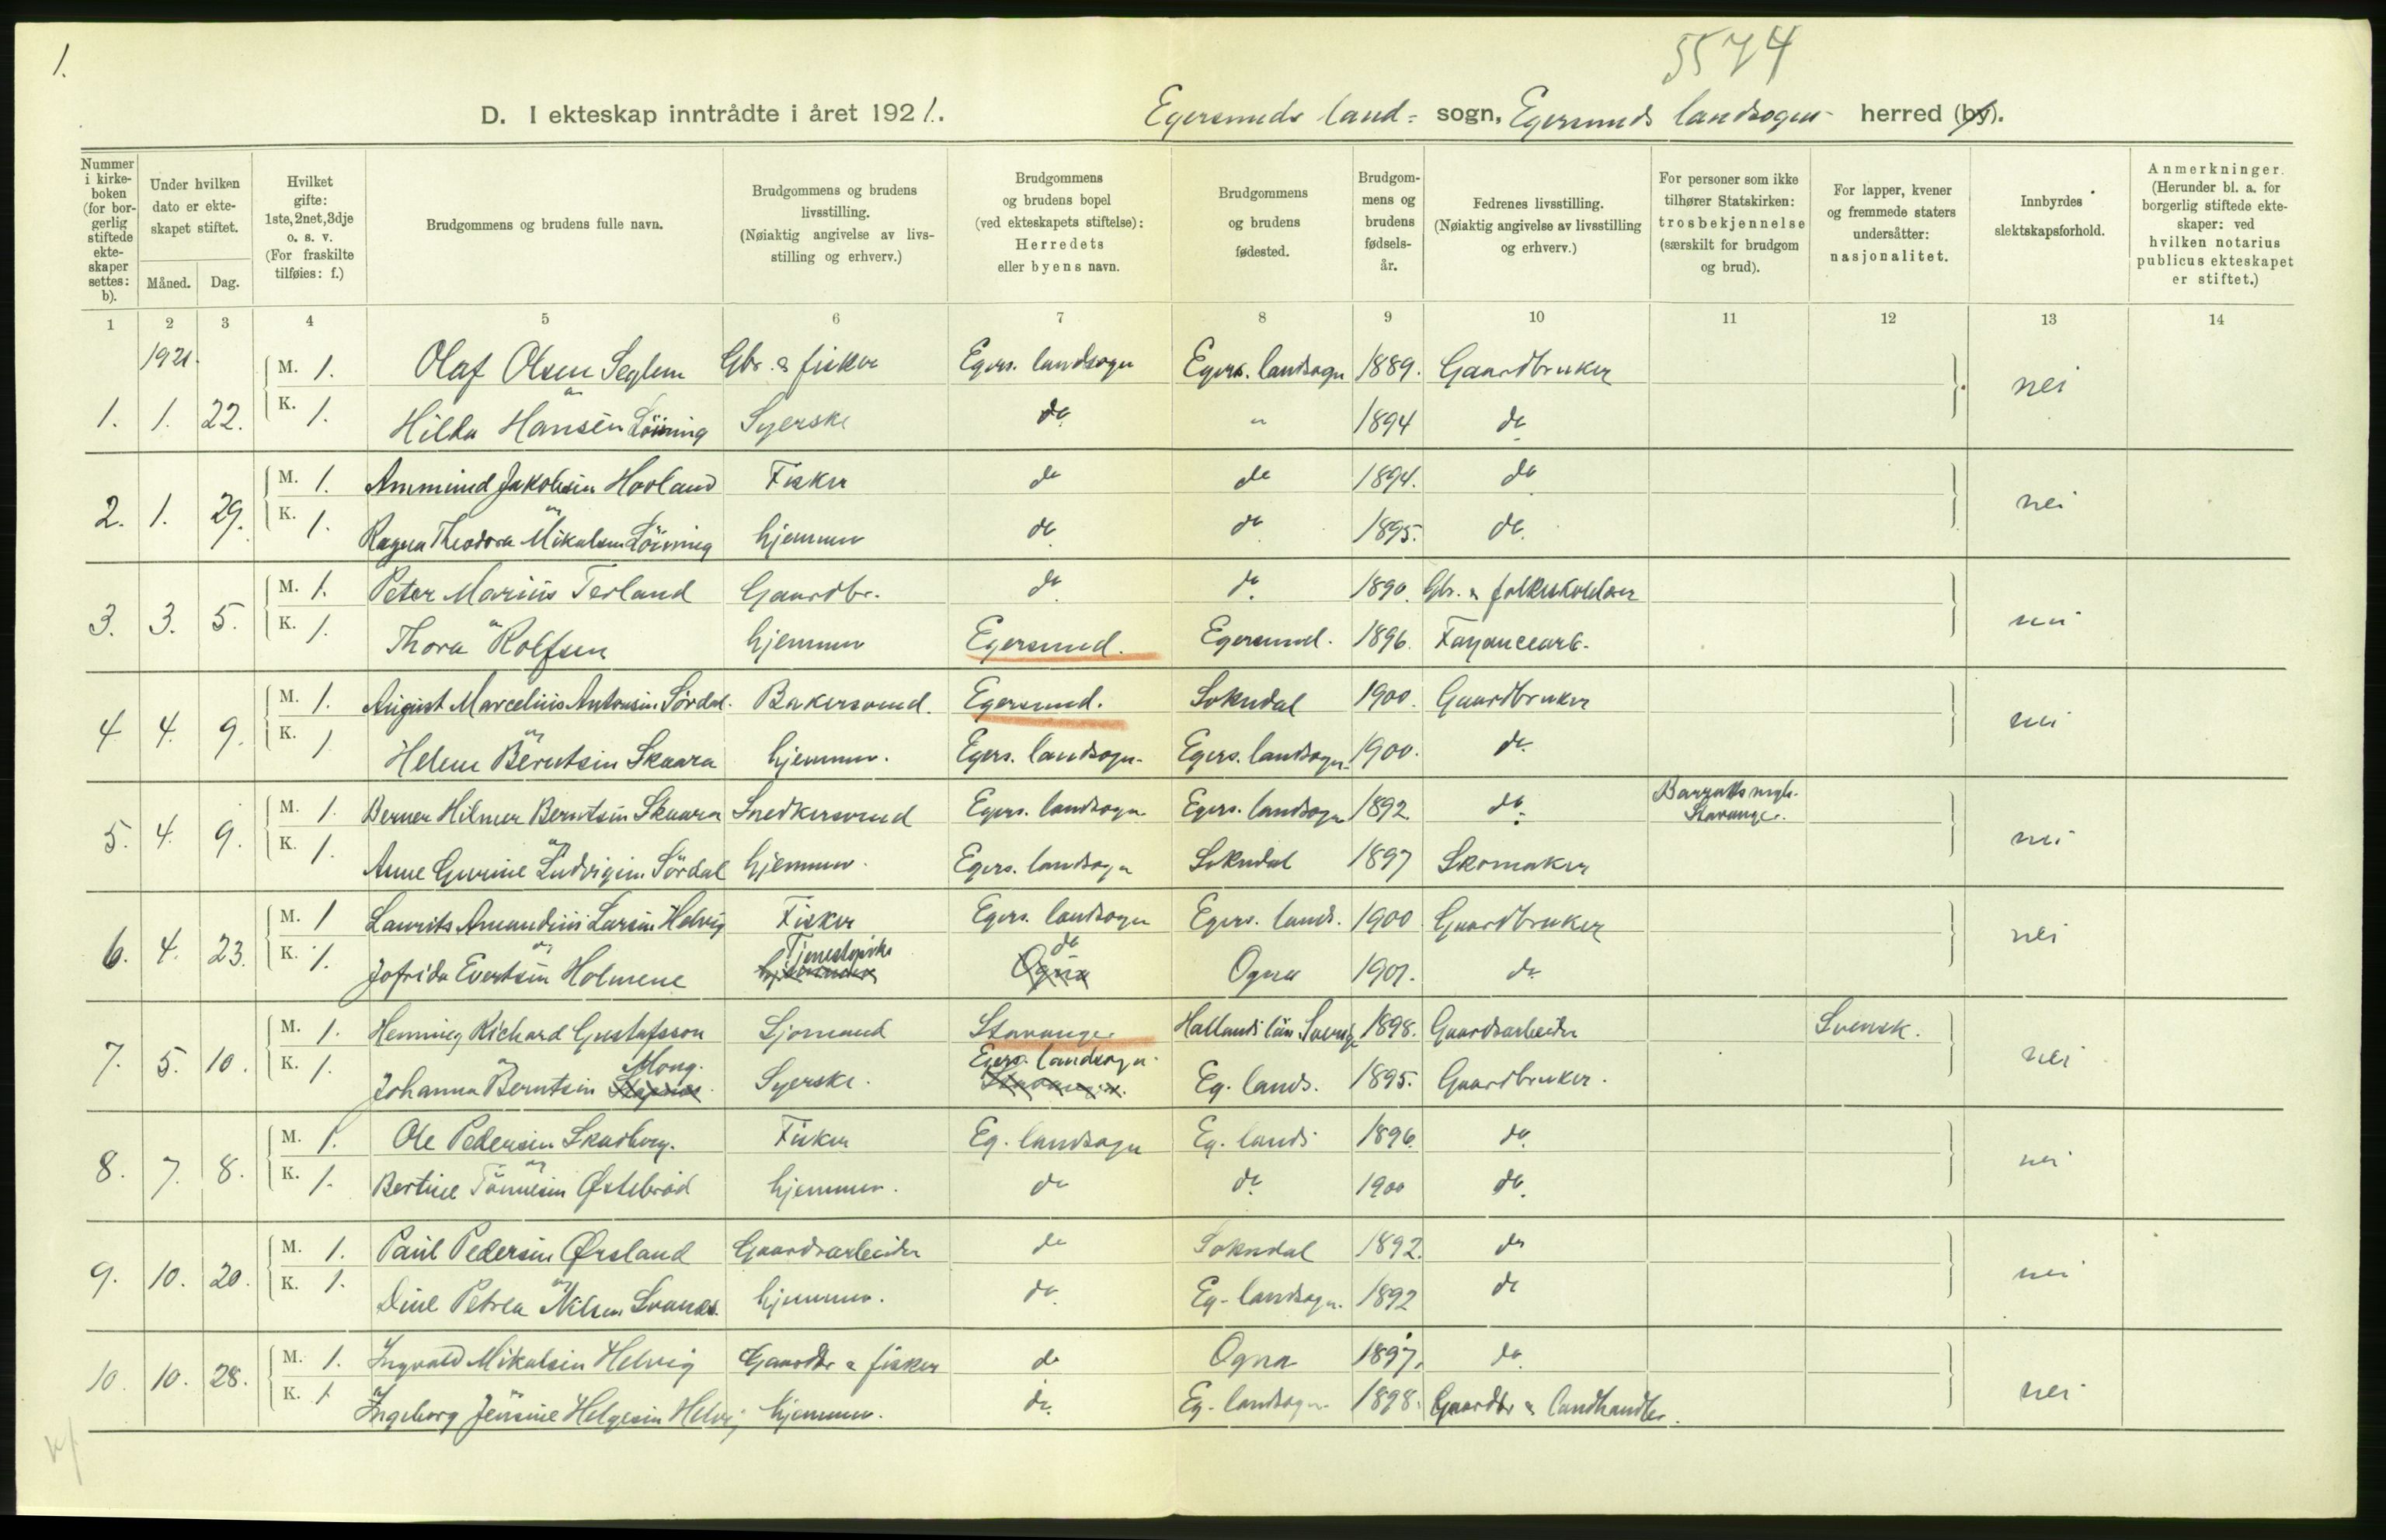 1.
5574
D. I ekteskap inntrådte i året 1921. Egersunds land- sogn, Egersunds landsogn herred (by).
Nummer i kirke-boken (for bor-gerlig stiftede ekte-skaper settes: b).
Under hvilken dato er ekte-skapet stiftet.
Måned. Dag.
Hvilket gifte: 1ste, 2net, 3dje o. s. v. (For fraskilte tilføies: f.)
Brudgommens og brudens fulle navn.
Brudgommens og brudens livsstilling. (Nøiaktig angivelse av livs-stilling og erhverv.)
Brudgommens og brudens bopel (ved ekteskapets stiftelse): Herredets eller byens navn.
Brudgommens og brudens fødested.
Brudgom-mens og brudens fødsels-år.
Fedrenes livsstilling. (Nøiaktig angivelse av livsstilling og erhverv.)
For personer som ikke tilhører Statskirken: trosbekjennelse (særskilt for brudgom og brud).
For lapper, kvener og fremmede staters undersåtter: nasjonalitet.
Innbyrdes slektskapsforhold.
Anmerkninger. (Herunder bl. a. for borgerlig stiftede ekte-skaper: ved hvilken notarius publicus ekteskapet er stiftet.)
1 2 3 4 5 6 7 8 9 10 11 12 13 14
1921.
M. 1. Olaf Olsen Seglem Gbr. & fisker Egers. landsogn Egers. landsogn 1889. Gaardbruker nei
1. 1. 22. K. 1. Hilda Hansen Löining Syerske do. " 1894 do
M. 1. Ammund Jakobsen Hovland Fisker do do 1894. do
2. 1. 29. K. 1. Ragna Theodora Mikalsen Löining hjemme do. do 1895. do. nei
M. 1. Peter Marius Terland Gaardbr. do do. 1890. Gbr. & folkeskolelærer
3. 3. 5. K. 1. Thora Rolfsen hjemme Egersund. Egersund. 1896. Fayancearb. nei
M. 1. August Marcelius Antonsen Sördal. Bakersvend. Egersund. Sokndal 1900. Gaardbruker
4 4. 9. K. 1 Helene Berntsen Skaara hjemme. Egers. landsogn. Egers. landsogn. 1900. do. nei
M. 1. Berner Hilmer Berntsen Skaara Snedkersvend Egers. landsogn Egers. landsogn 1892. do. Stavanger.
5. 4. 9. K. 1. Anne Gurine Ludvigsen Sördal hjemme. Egers. landsogn Sokndal 1897 Skomaker nei
M. 1 Laurits Amandius Larsen Helvig Fisker Egers. landsogn Egers. lands. 1900 Gaardbruker
6. 4. 23. K. 1. Jofrida Evertsen Holmene Tjenestepike hjemme do Ogna Ogna 1901. do nei
M. 1. Henning Richard Gustafsson Sjömand Stavanger Hallands län. Sverige 1898. Gaardsarbeider Svensk.
7. 5. 10. K. 1. Johanna Berntsen Mong. Syerske. Egers. landsogn Stavanger. Eg. lands. 1895. Gaardbruker. nei
M. 1. Ole Pedersen Skadberg. Fisker Eg. landsogn Eg. lands 1896. do.
8. 7. 8. K. 1. Bertine Tönnesen Østebröd hjemme. do do. 1900 do. nei
M. 1. Paul Pedersen Ørsland Gaardsarbeider do Sokndal 1892. do
9. 10. 20. K. 1. Dine Petrea Nilsen Svanes. hjemme. do. Eg. landsogn. 1892 do nei
M. 1. Ingvald Mikalsen Helvig Gaardbr & fisker do Ogna 1897. do.
10. 10. 28. K. 1 Ingeborg Jensine Helgesen Helvig hjemme. do. Eg. landsogn. 1898. Gaardbr & landhandler. nei